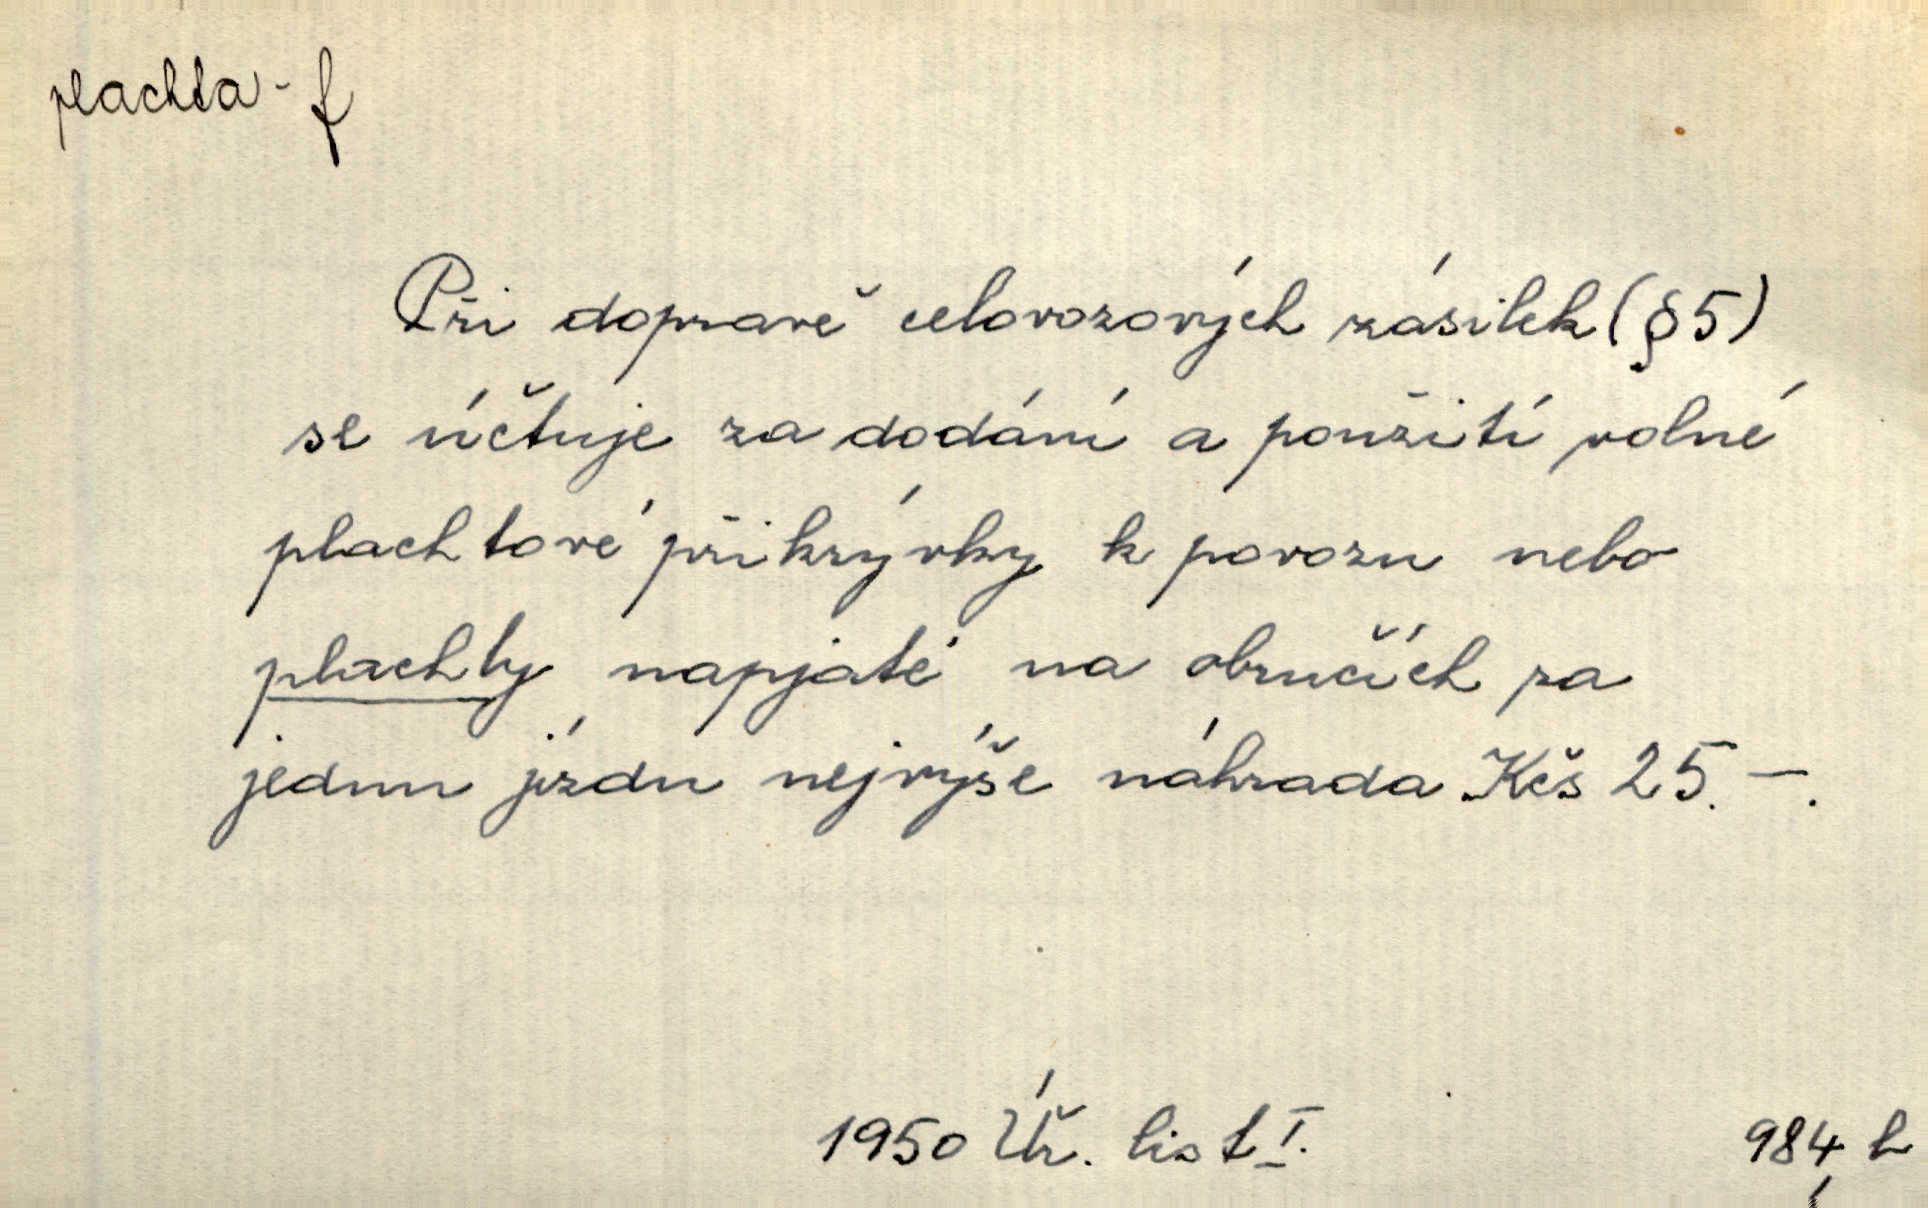 plachta - f
Při dopravě celovozových zásilek (§5)
se účtuje za dodání a použití volné
plachtové přikrývky k povozu nebo
plachty napjaté na obručích za
jednu jízdu nejvýše náhrada Kčs 25.–.
1950 Úř. list I. 984 b